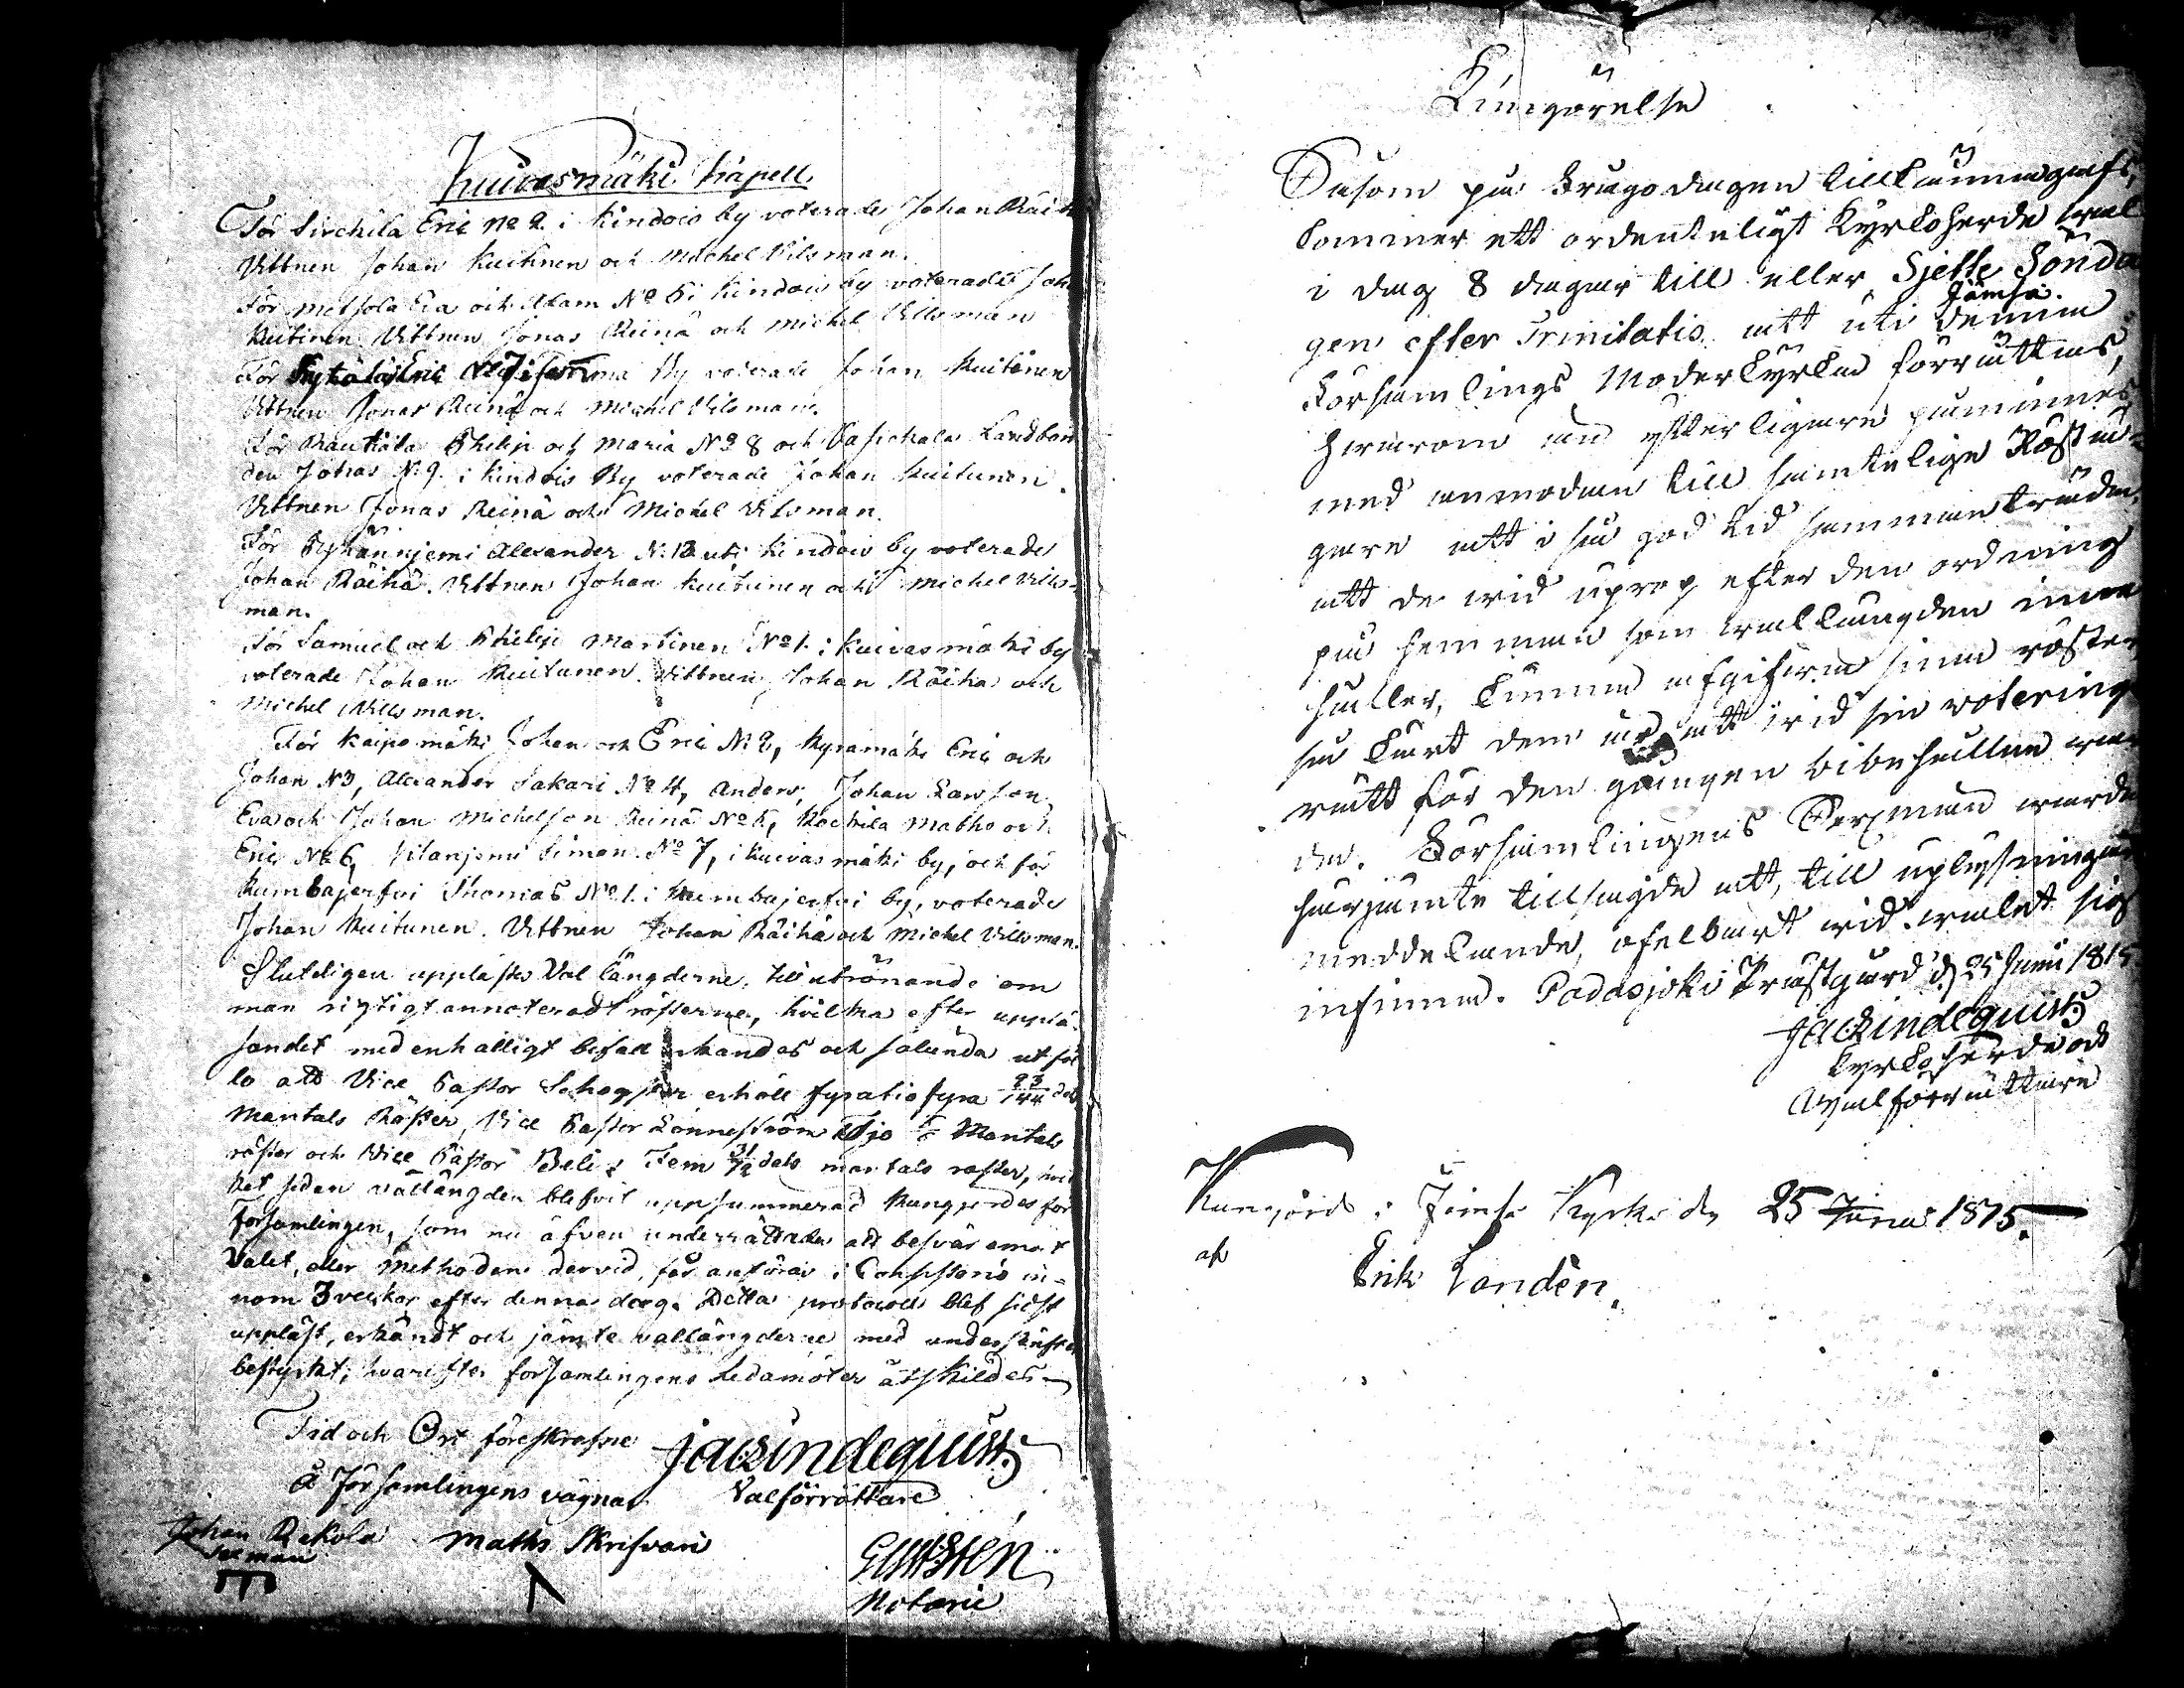 Kuivasmäki Kapell
För Sirchila Eric No 2. i Kindois by voterade Johan Räihä
Vittnen Johan Kuitunen och Michel Vilsman.
För Metsola Eva och Adam No 5 i Kindois by voterade Joh.
Kuitinen Vittnen Jonas Reinä och Michel Villsman
För Eric No 7 i by voterade Johan Kuitinen
Vittnen Jonas Reinä och Michel Vilsman.
För Rautiala Philip och Maria No 8 och Landbon-
den Johas N. 9. i Kindois By voterade Johan Kuitunen.
Vittnen Jonas Reinä och Michel Vilsman.
För Pyhänniemi Alexander N. 12 uti Kindois by voterade
Johan Räihä. Vittnen Johan Kuitunen och Michel Vills-
man.
För Samuel och Philip Martinen No 1. i Kuivasmäki by
voterade Johan Kuitunen. Vittnen Johan Räihä och
Michel Villsman.
För Kaipomäki Johan och Eric N. 2, Kyramäki Eric och
Johan N 3, Alexander Sakari No 4, Anders, Johan Larsson,
Eva och Johan Michelsson Reinä No 5, Rachila Maths och
Eric No 6, Vitanjemi Simon No 7, i Kuivasmäki by, och för
Kumbajerfvi Thomas No 1. i Kumbajerfvi by, voterade
Johan Kuitunen. Vittnen Johan Räihä och Michel Villsman.
Sluteligen upplästes Vallängderne, till utrönande om
man rigtigt annoteradt rösterne, hvilka efter upplä-
sandet medenhälligt befall erkändes och salunda utföl
lo att Vice Pastor erhöll fyratiofyra 93/144 dels
Mantals Röster, Vice Pastor Lönneström Tjo Mantals
röster och Vice Pastor Fem 31/72 dels mantals röster, hvil
ket sedan vallängden blefvit uppsummerad kungjordes för
Församlingen, som nu äfven underrättades att besvär emot
Valet, eller Methoden dervid, får anföras i Consistorio in-
nom 3 veckor efter denna dag. Detta protocoll blef sidst
uppläst, erkändt och jämte vallängderne med underskrifter
bestyrkt; hvarefter församlingens Ledamöter åtskildes
Tid och Ort föreskrefne
Jac Lindequist
Å Församlingens vägnar Valförrättare
Johan Rekola Maths Skrifvari
Sexman
Notarie
Kungörelse
Såsom på Brago dagen tillkännagafs,
kommer ett ordenteligt Kyrkoherde wal
i dag 8 dagar till eller Sjette Sönda
gen efter Trinitatis att uti denna Jämsä
Församlings Moderkyrka förrättas,
hwarom nu ytterligare påminnes
med anmodan till samtelige Röstä-
gare att i så god tid sammanträda,
att de wid uprop efter den ordning
på hemman som wallängden inne
håller, kunna afgifwa sina röster
så kärt dem är att wid sin voterings
rätt för den gången bibehållne war
da. Församlingens Sexmän warda
härjämte tillsagde att, till uplysningar
meddelande, ofelbart wid walet sig
infinna. Padasjoki Prästgård d 25 Juni 1815
Jac Lindequist
Kyrkoherde och
Walförrättare
Kungjord i Jämsä Kyrka den 25 Junii 1815.
af
Erik Landén.